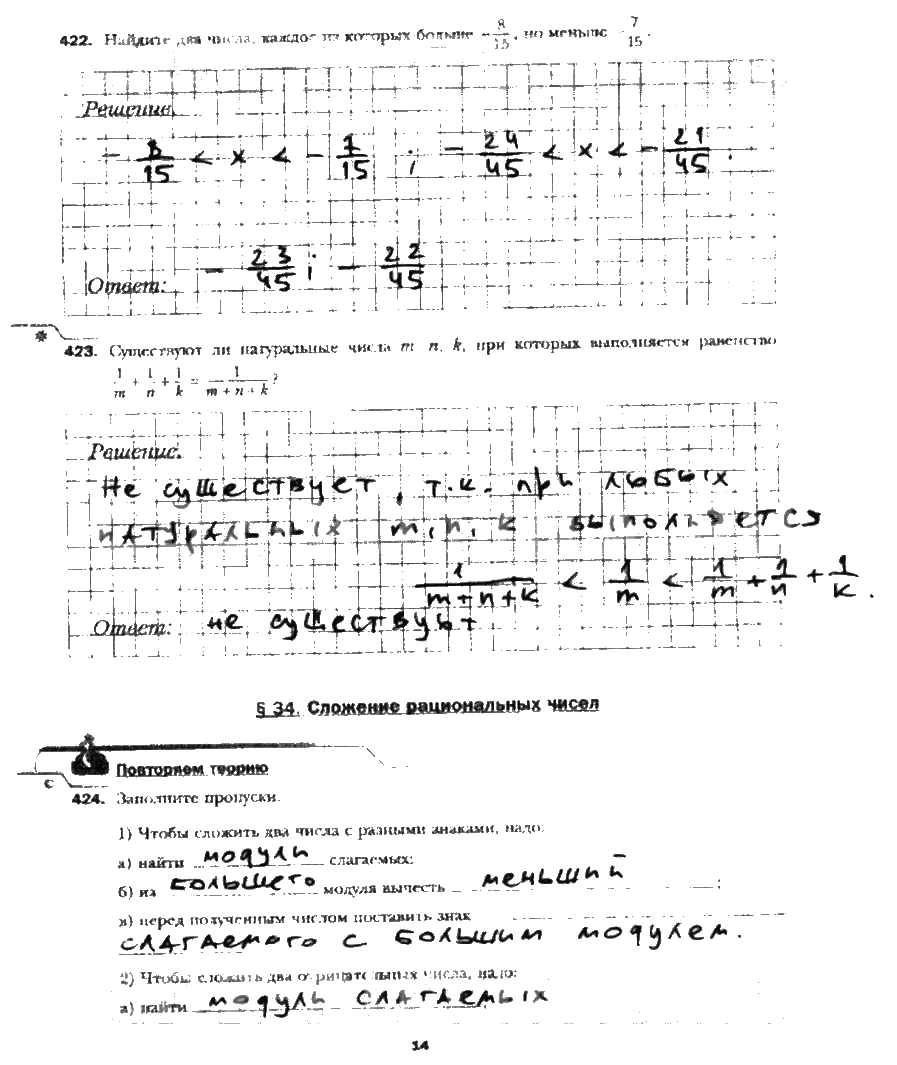 422. Найдите два числа, каждое из которых больше -8/15, но меньше -7/15.
Решение.
- 8/15 < x < - 7/15 ; - 24/45 < x < - 21/45.
Ответ: - 23/45; - 22/45
423. Существуют ли натуральные числа m, n, k, при которых выполняется равенство
1/m + 1/n + 1/k = 1/(m + n + k)?
Решение.
Не существует, т.к. при любых
натуральных m, n, k выполняется
1/(m+n+k) < 1/m < 1/m + 1/n + 1/k.
Ответ: не существуют
§ 34. Сложение рациональных чисел
Повторяем теорию
С
424. Заполните пропуски.
1) Чтобы сложить два числа с разными знаками, надо:
а) найти модули слагаемых;
б) из большего модуля вычесть меньший ;
в) перед полученным числом поставить знак
слагаемого с большим модулем.
2) Чтобы сложить два отрицательных числа, надо:
а) найти модуль слагаемых
14